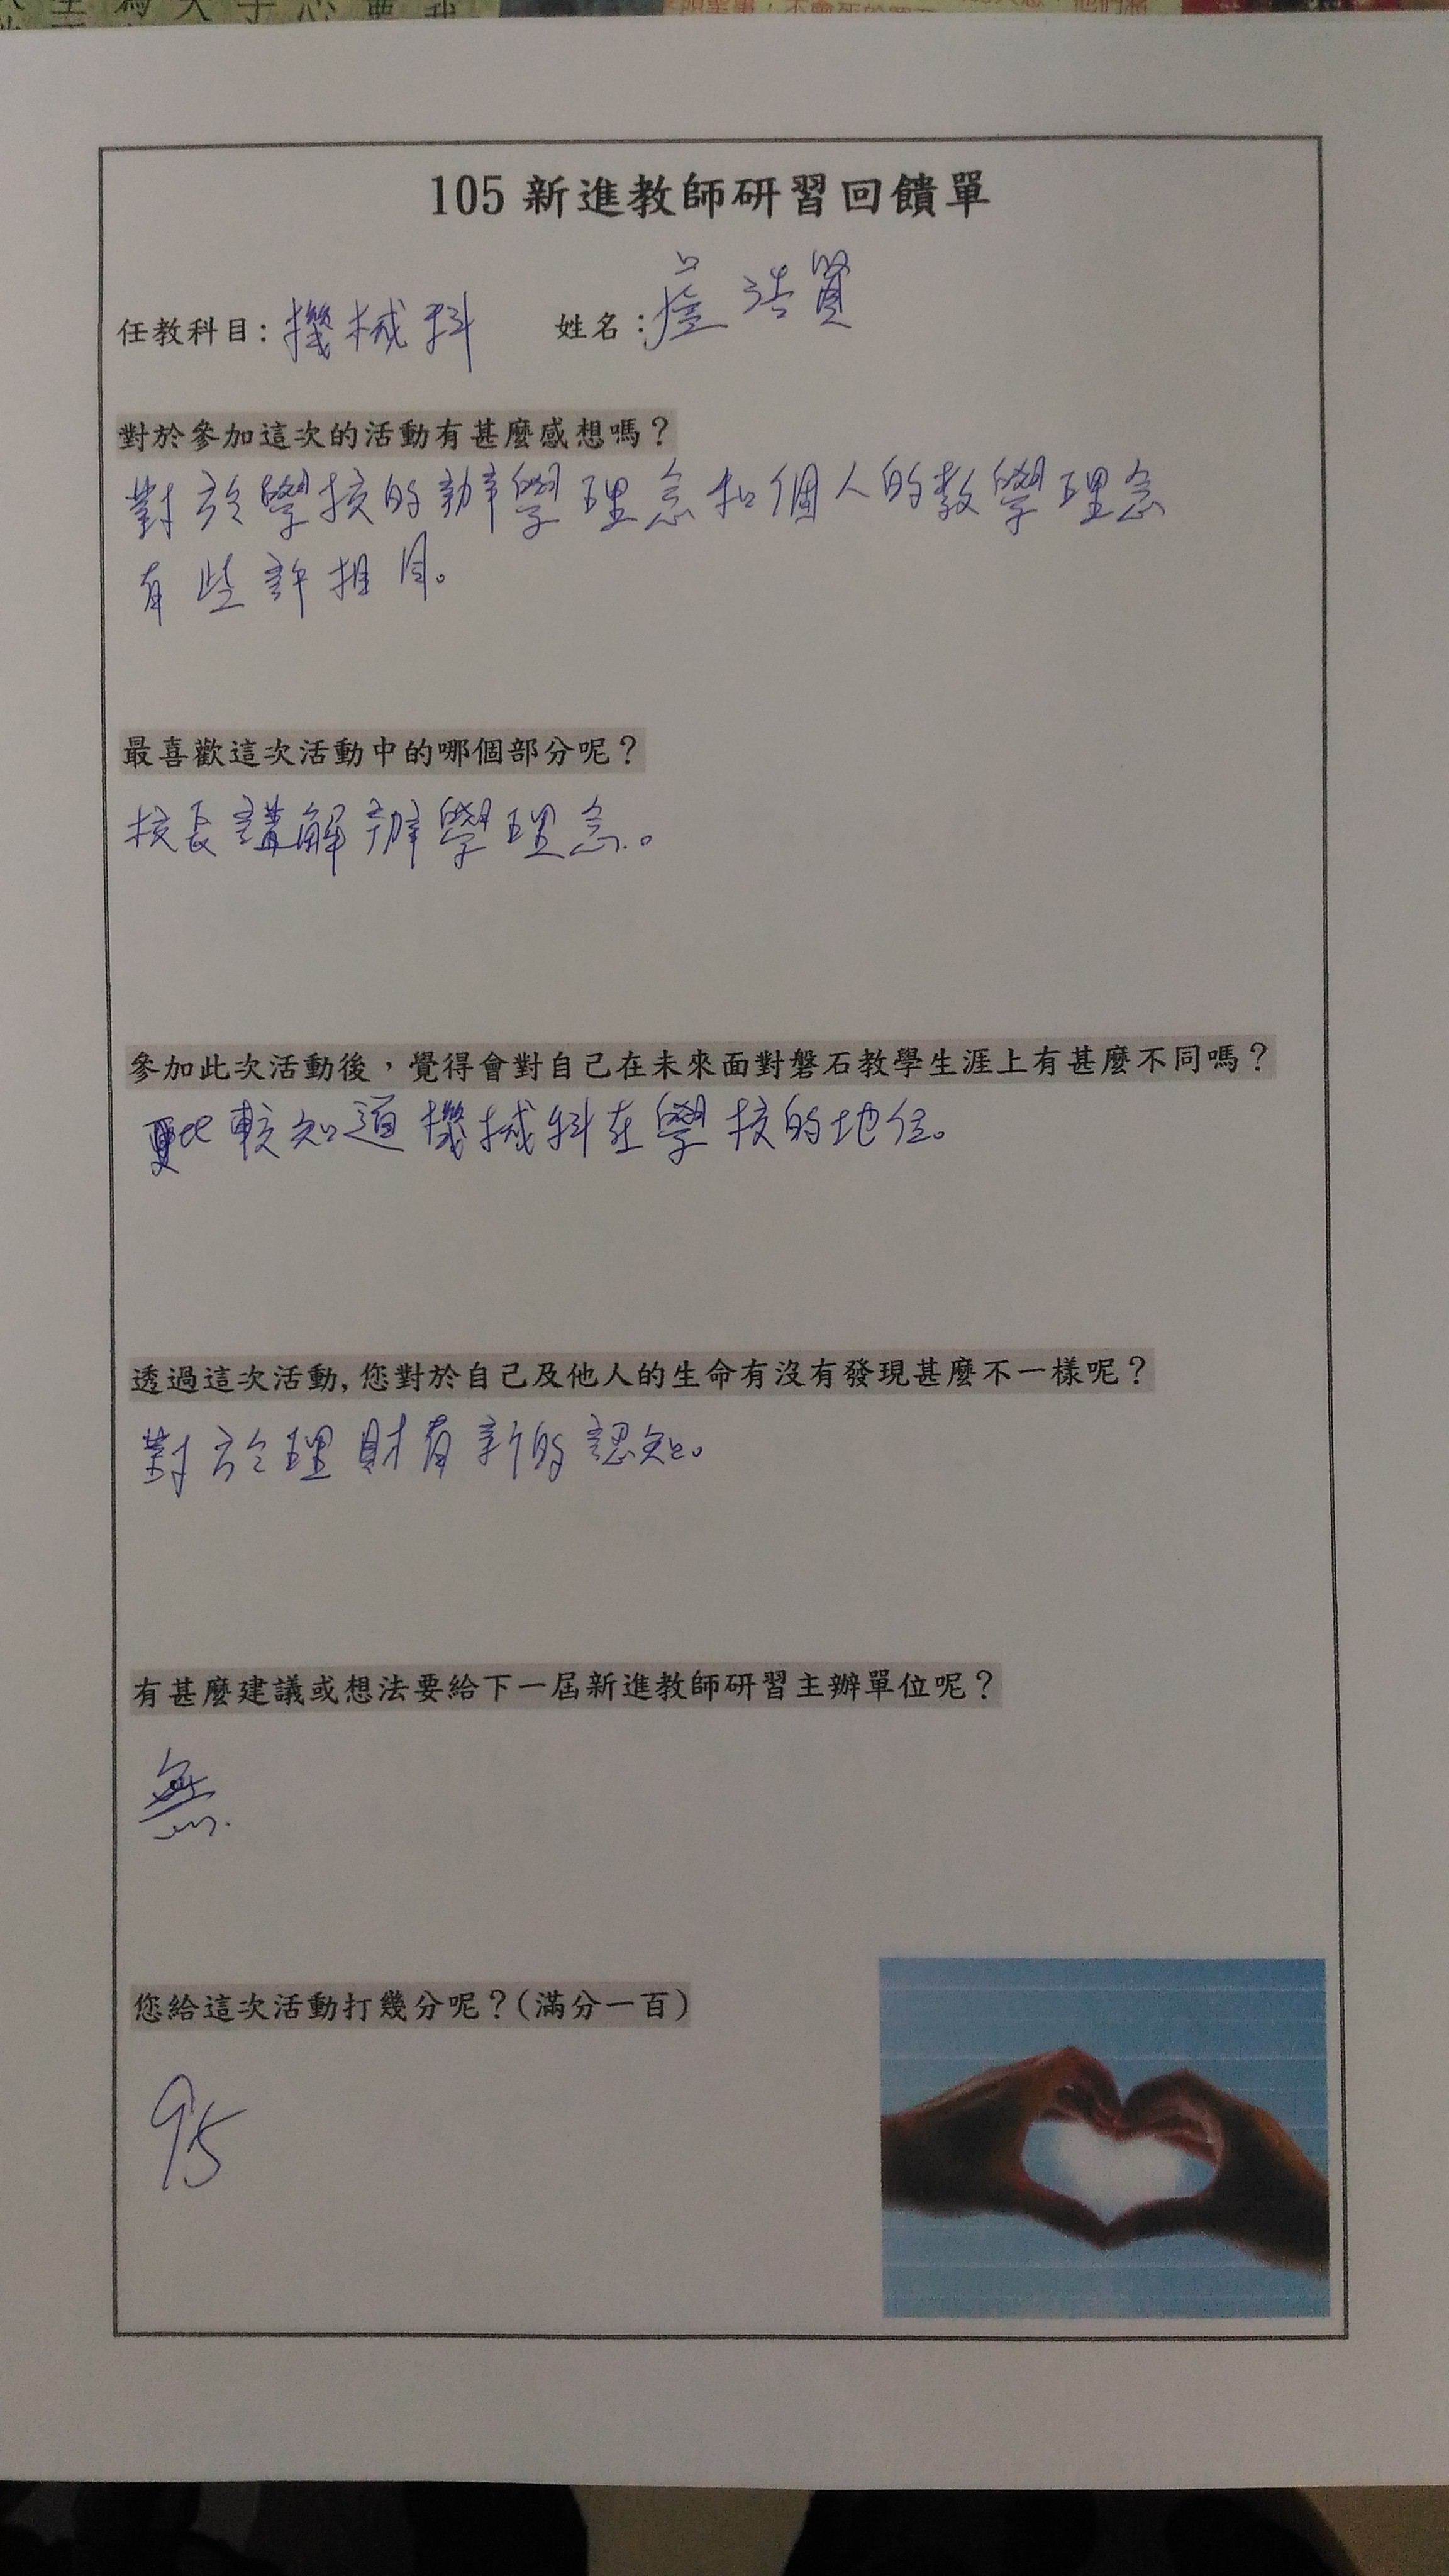 105 新進教師研習回饋單
任教科目: 機械科 姓名: 浩賢
對於參加這次的活動有甚麼感想嗎？
對於學校的辦學理念和個人的教學理念
有些許相同。
最喜歡這次活動中的哪個部分呢？
校長講解辦學理念。
參加此次活動後，覺得會對自己在未來面對磐石教學生涯上有甚麼不同嗎？
更比較知道機械科在學校的地位。
透過這次活動,您對於自己及他人的生命有沒有發現甚麼不一樣呢？
對於理財有新的認知。
有甚麼建議或想法要給下一屆新進教師研習主辦單位呢？
無.
您給這次活動打幾分呢？(滿分一百)
95